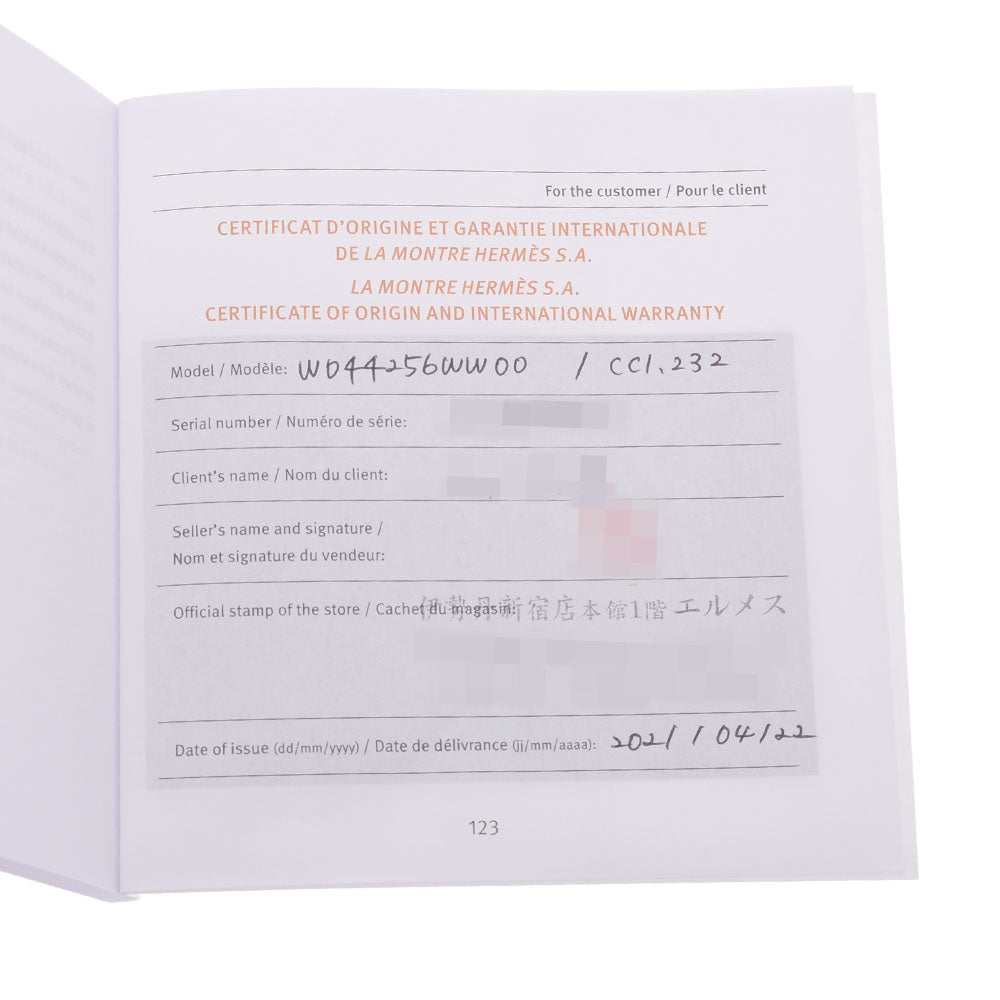 For the customer / Pour le client
CERTIFICAT D'ORIGINE ET GARANTIE INTERNATIONALE
DE LA MONTRE HERMÈS S.A.
LA MONTRE HERMÈS S.A.
CERTIFICATE OF ORIGIN AND INTERNATIONAL WARRANTY
Model / Modèle: W044256WW00 / CC1.232
Serial number / Numéro de série:
Client's name / Nom du client:
Seller's name and signature /
Nom et signature du vendeur:
Official stamp of the store / Cachet du magasin: 伊勢丹新宿店本館1階エルメス
Date of issue (dd/mm/yyyy) / Date de délivrance (jj/mm/aaaa): 2021 / 04/22
123